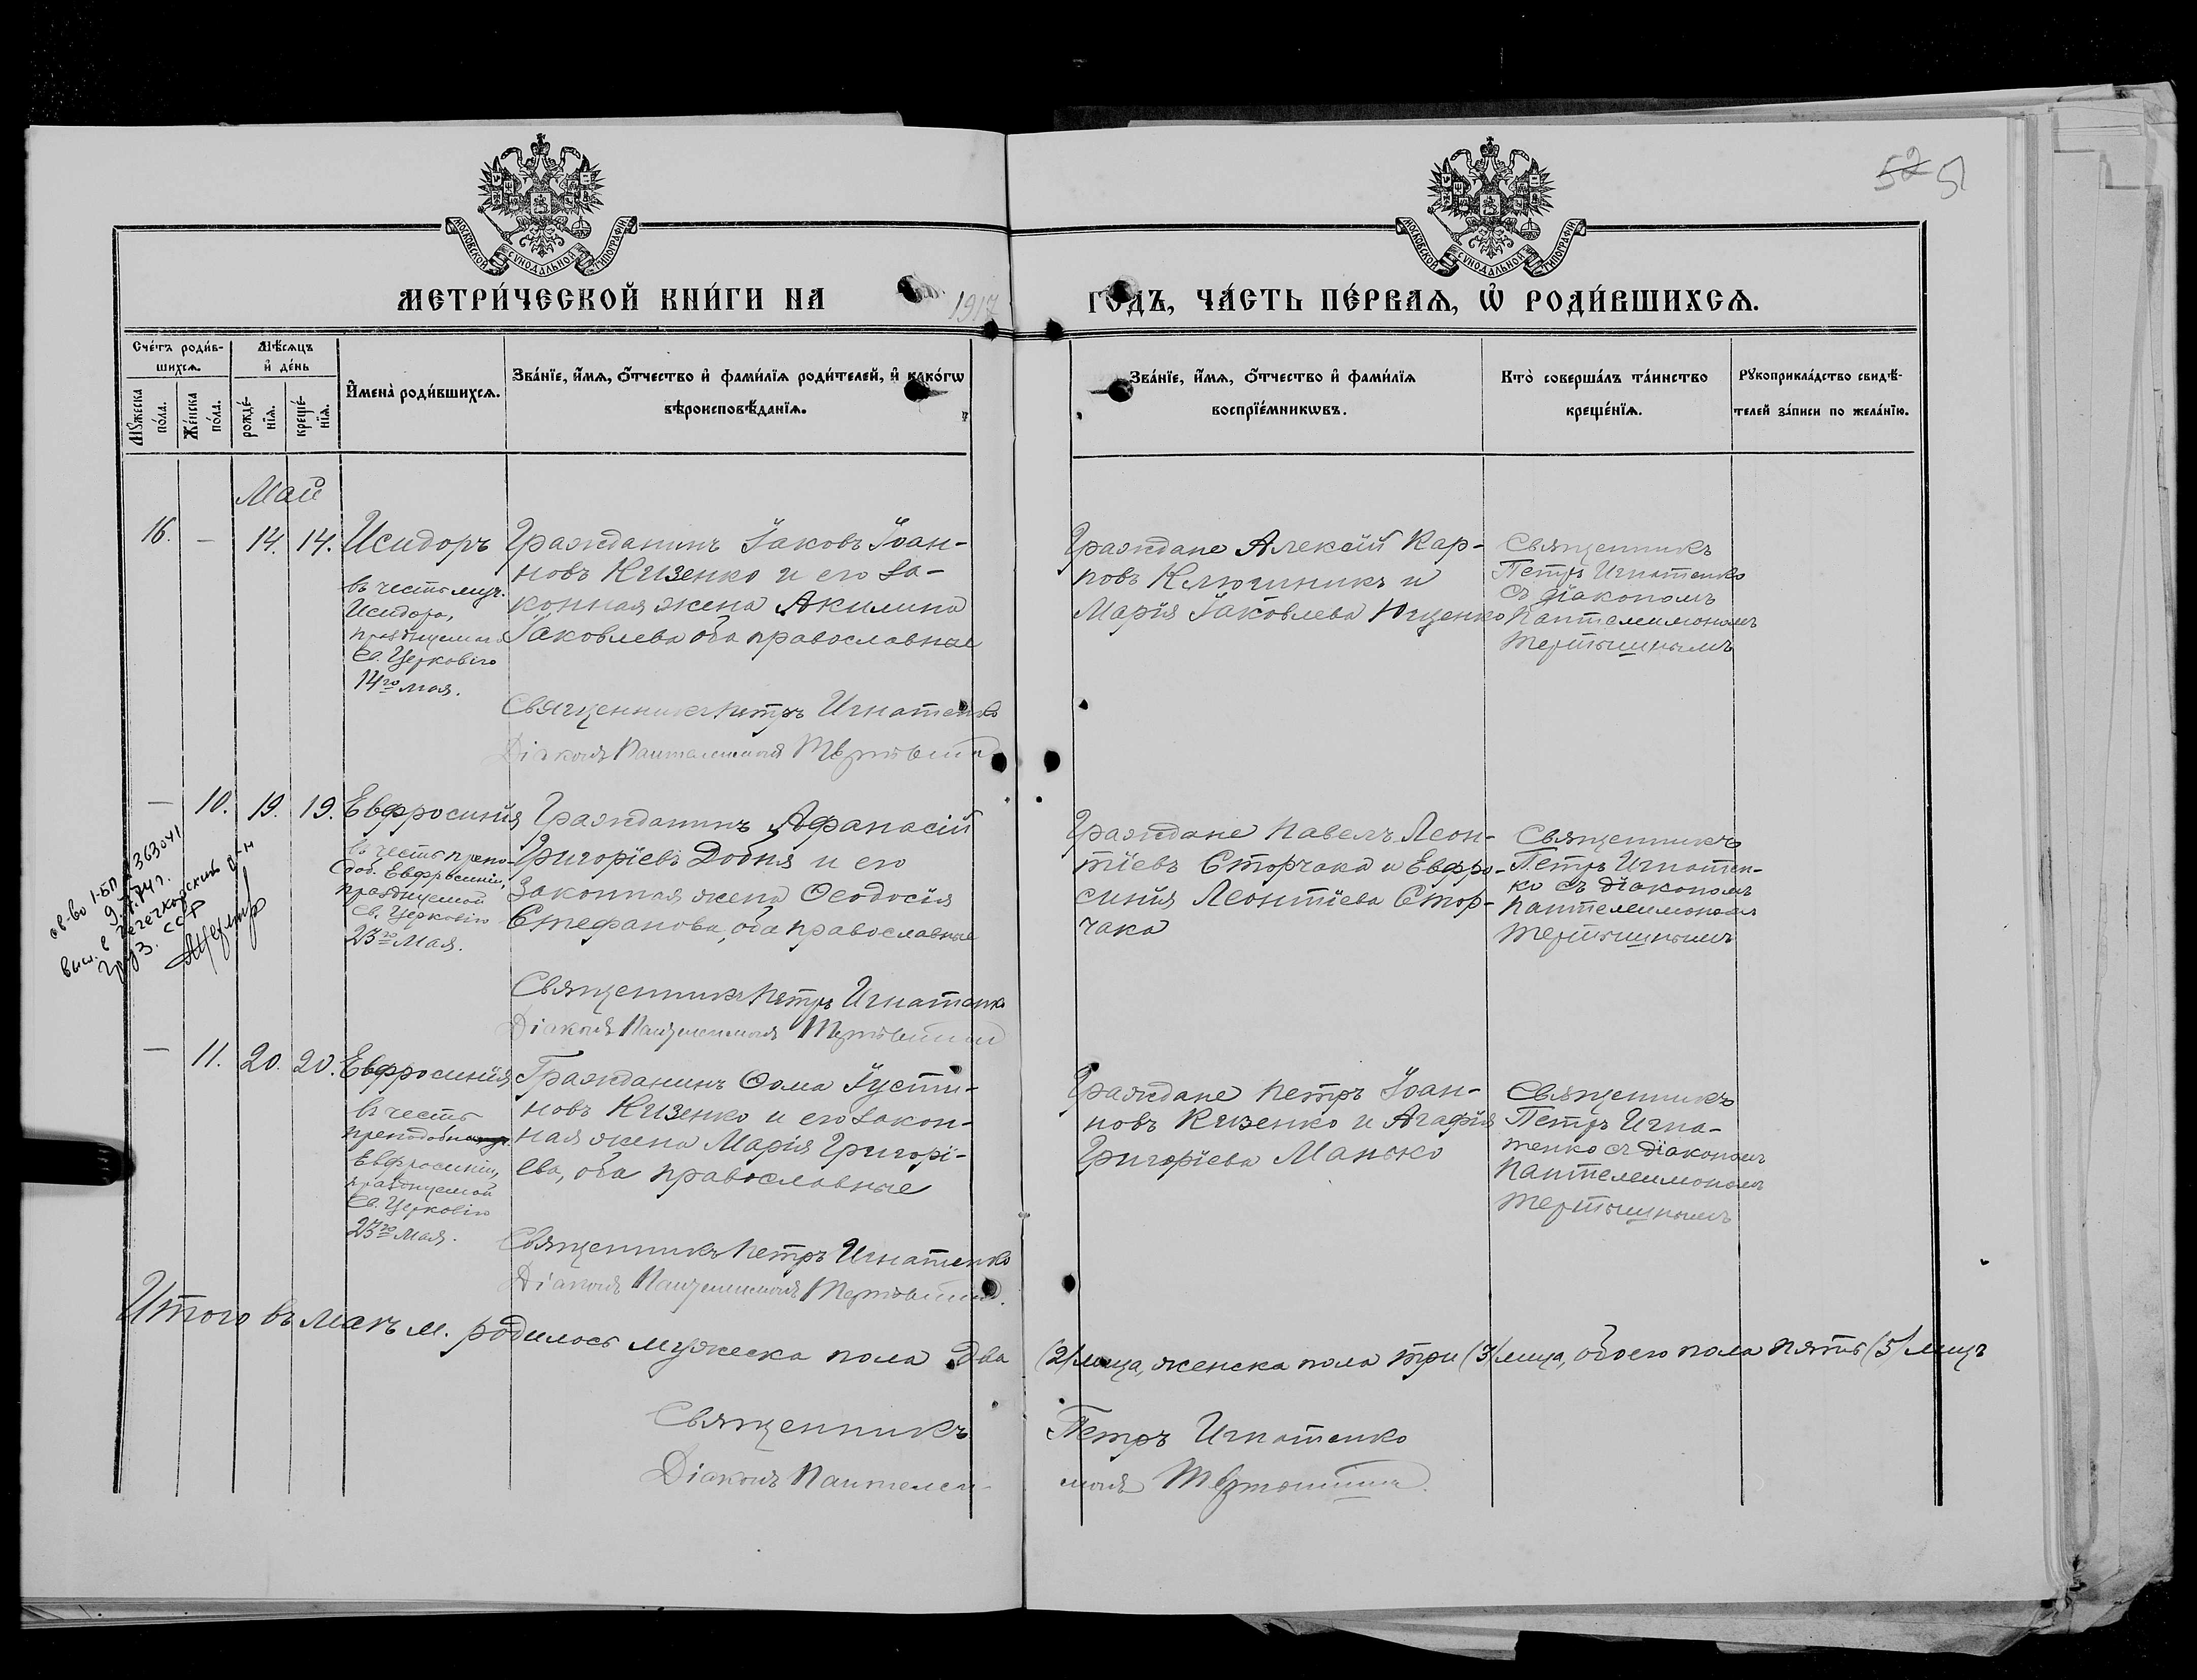 52 51
МОСКОВСКОЙ СУНОДАЛЬНОЙ ТИПОГРАФІИ.
МОСКОВСКОЙ СУНОДАЛЬНОЙ ТИПОГРАФІИ.
МЕТРИ́ЧЕСКОЙ КНИ́ГИ НА 1917 ГОДЪ, ЧА́СТЬ ПЕ́РВАѦ, Ѡ РОДИ́ВШИХСѦ.
Сче́тъ роди́в-
шихсѧ.
Мꙋ́жеска
по́ла.
Же́нска
по́ла.
Мѣ́сѧцъ
и҆ де́нь
рожде́-
нїѧ.
креще́-
нїѧ.
И҆мена̀ роди́вшихсѧ.
Зва́нїе, и҆́мѧ, ѻ҆́тчество и҆ фами́лїѧ роди́телей, и҆ како́гѡ
вѣроисповѣ́данїѧ.
Зва́нїе, и҆́мѧ, ѻ҆́тчество и҆ фами́лїѧ
воспрїе́мникѡвъ.
Кто̀ соверша́лъ та́инство
креще́нїѧ.
Рꙋкоприкла́дство свидѣ́-
телей за́писи по жела́нїю.
Май
16. — 14. 14. Исидоръ
въ честь муч.
Исидора,
празднуемаго
Св. Церковію
14го мая.
Гражданинъ Іаковъ Іоан-
новъ Кизенко и его за-
конная жена Акилина
Іаковлева оба православные
Священникъ Петръ Игнатенко
Діаконъ Пантелеимонъ
Граждане Алексій Кар-
повъ Ключникъ и
Марія Іаковлева
Священникъ
Петръ Игнатенко
съ діакономъ
Пантелеимономъ
— 10. 19. 19. Евфросинія
въ честь препо-
доб. Евфросиніи,
празднуемой
Св. Церковію
23го Мая.
св-во 1-БП № 363041
выс. в Гегечкорский р-н
Груз. ССР
Гражданинъ Афанасій
Григоріевъ Добня и его
законная жена Ѳеодосія
Стефанова, оба православные
Священникъ Петръ Игнатенко
Діаконъ Пантелеимонъ
Граждане Павелъ Леон-
тіевъ Сторчака и Евфро-
синія Леонтіева Стор-
чака
Священникъ
Петръ Игнатен-
ко съ діакономъ
Пантелеимономъ
— 11. 20. 20. Евфросинія
въ честь
преподобной
Евфросиніи,
празднуемой
Св. Церковію
23го Мая.
Гражданинъ Ѳома Іусти-
новъ Кизенко и его закон-
ная жена Марія Григорі-
ева, оба православные
Священникъ Петръ Игнатенко
Діаконъ Пантелеимонъ
Граждане Петръ Іоан-
новъ Кизенко и Агафія
Григоріева Манько
Священникъ
Петръ Игна-
тенко съ діакономъ
Пантелеимономъ
Итого въ маѣ м. родилось мужеска пола два (2) лица, женска пола три (3) лица, обоего пола пять (5) лицъ
Священникъ Петръ Игнатенко
Діаконъ Пантелеи-
монъ